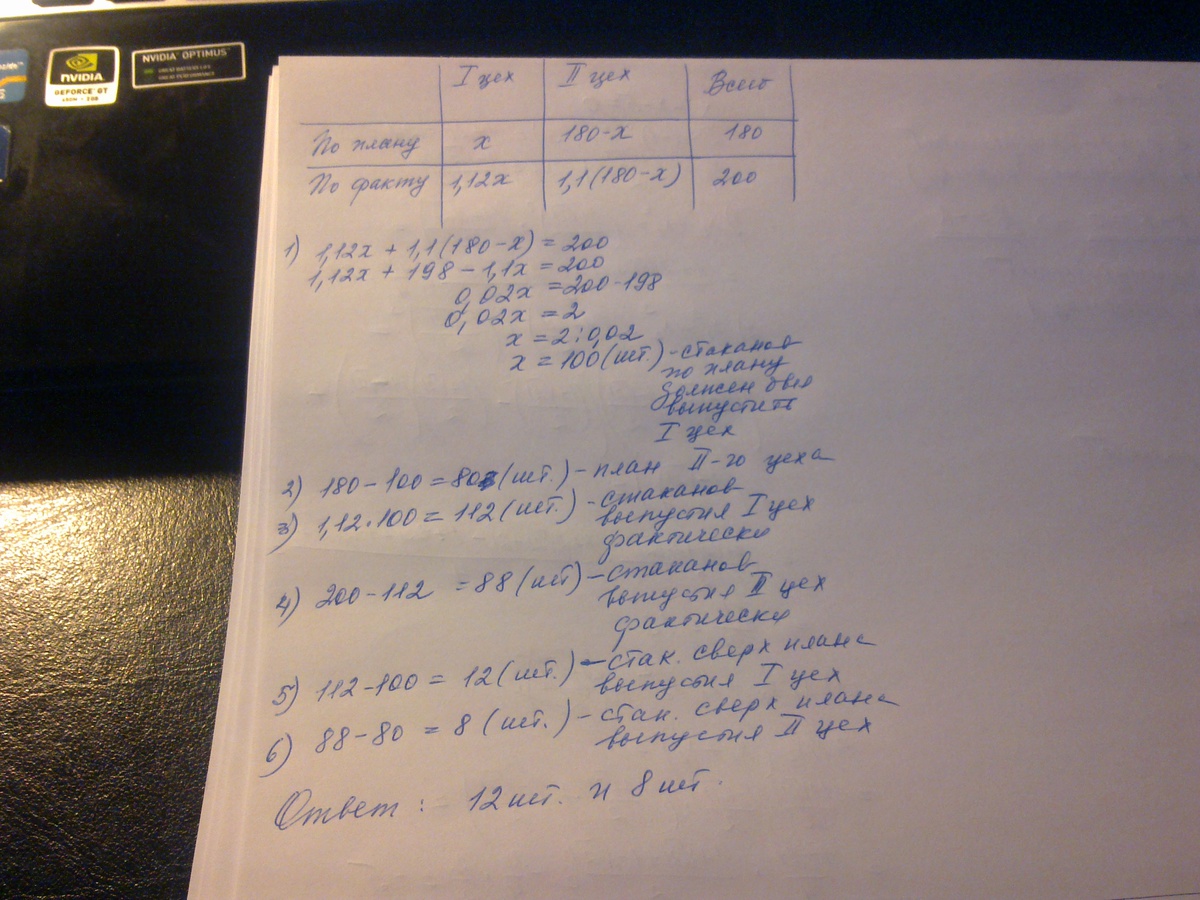 NVIDIA
GEFORCE GT
NVIDIA OPTIMUS
GREAT BATTERY LIFE
GREAT PERFORMANCE
I цех II цех Всего
По плану x 180-x 180
По факту 1,12x 1,1(180-x) 200
1) 1,12x + 1,1(180-x) = 200
1,12x + 198 - 1,1x = 200
0,02x = 200-198
0,02x = 2
x = 2:0,02
x = 100 (шт.) - стаканов
по плану
должен был
выпустить
I цех
2) 180-100 = 80 (шт.) - план II-го цеха
3) 1,12·100 = 112 (шт.) - стаканов
выпустил I цех
фактически
4) 200-112 = 88 (шт) - стаканов
выпустил II цех
фактически
5) 112-100 = 12 (шт.) - стак. сверх плана
выпустил I цех
6) 88-80 = 8 (шт.) - стак. сверх плана
выпустил II цех
Ответ: 12 шт. и 8 шт.